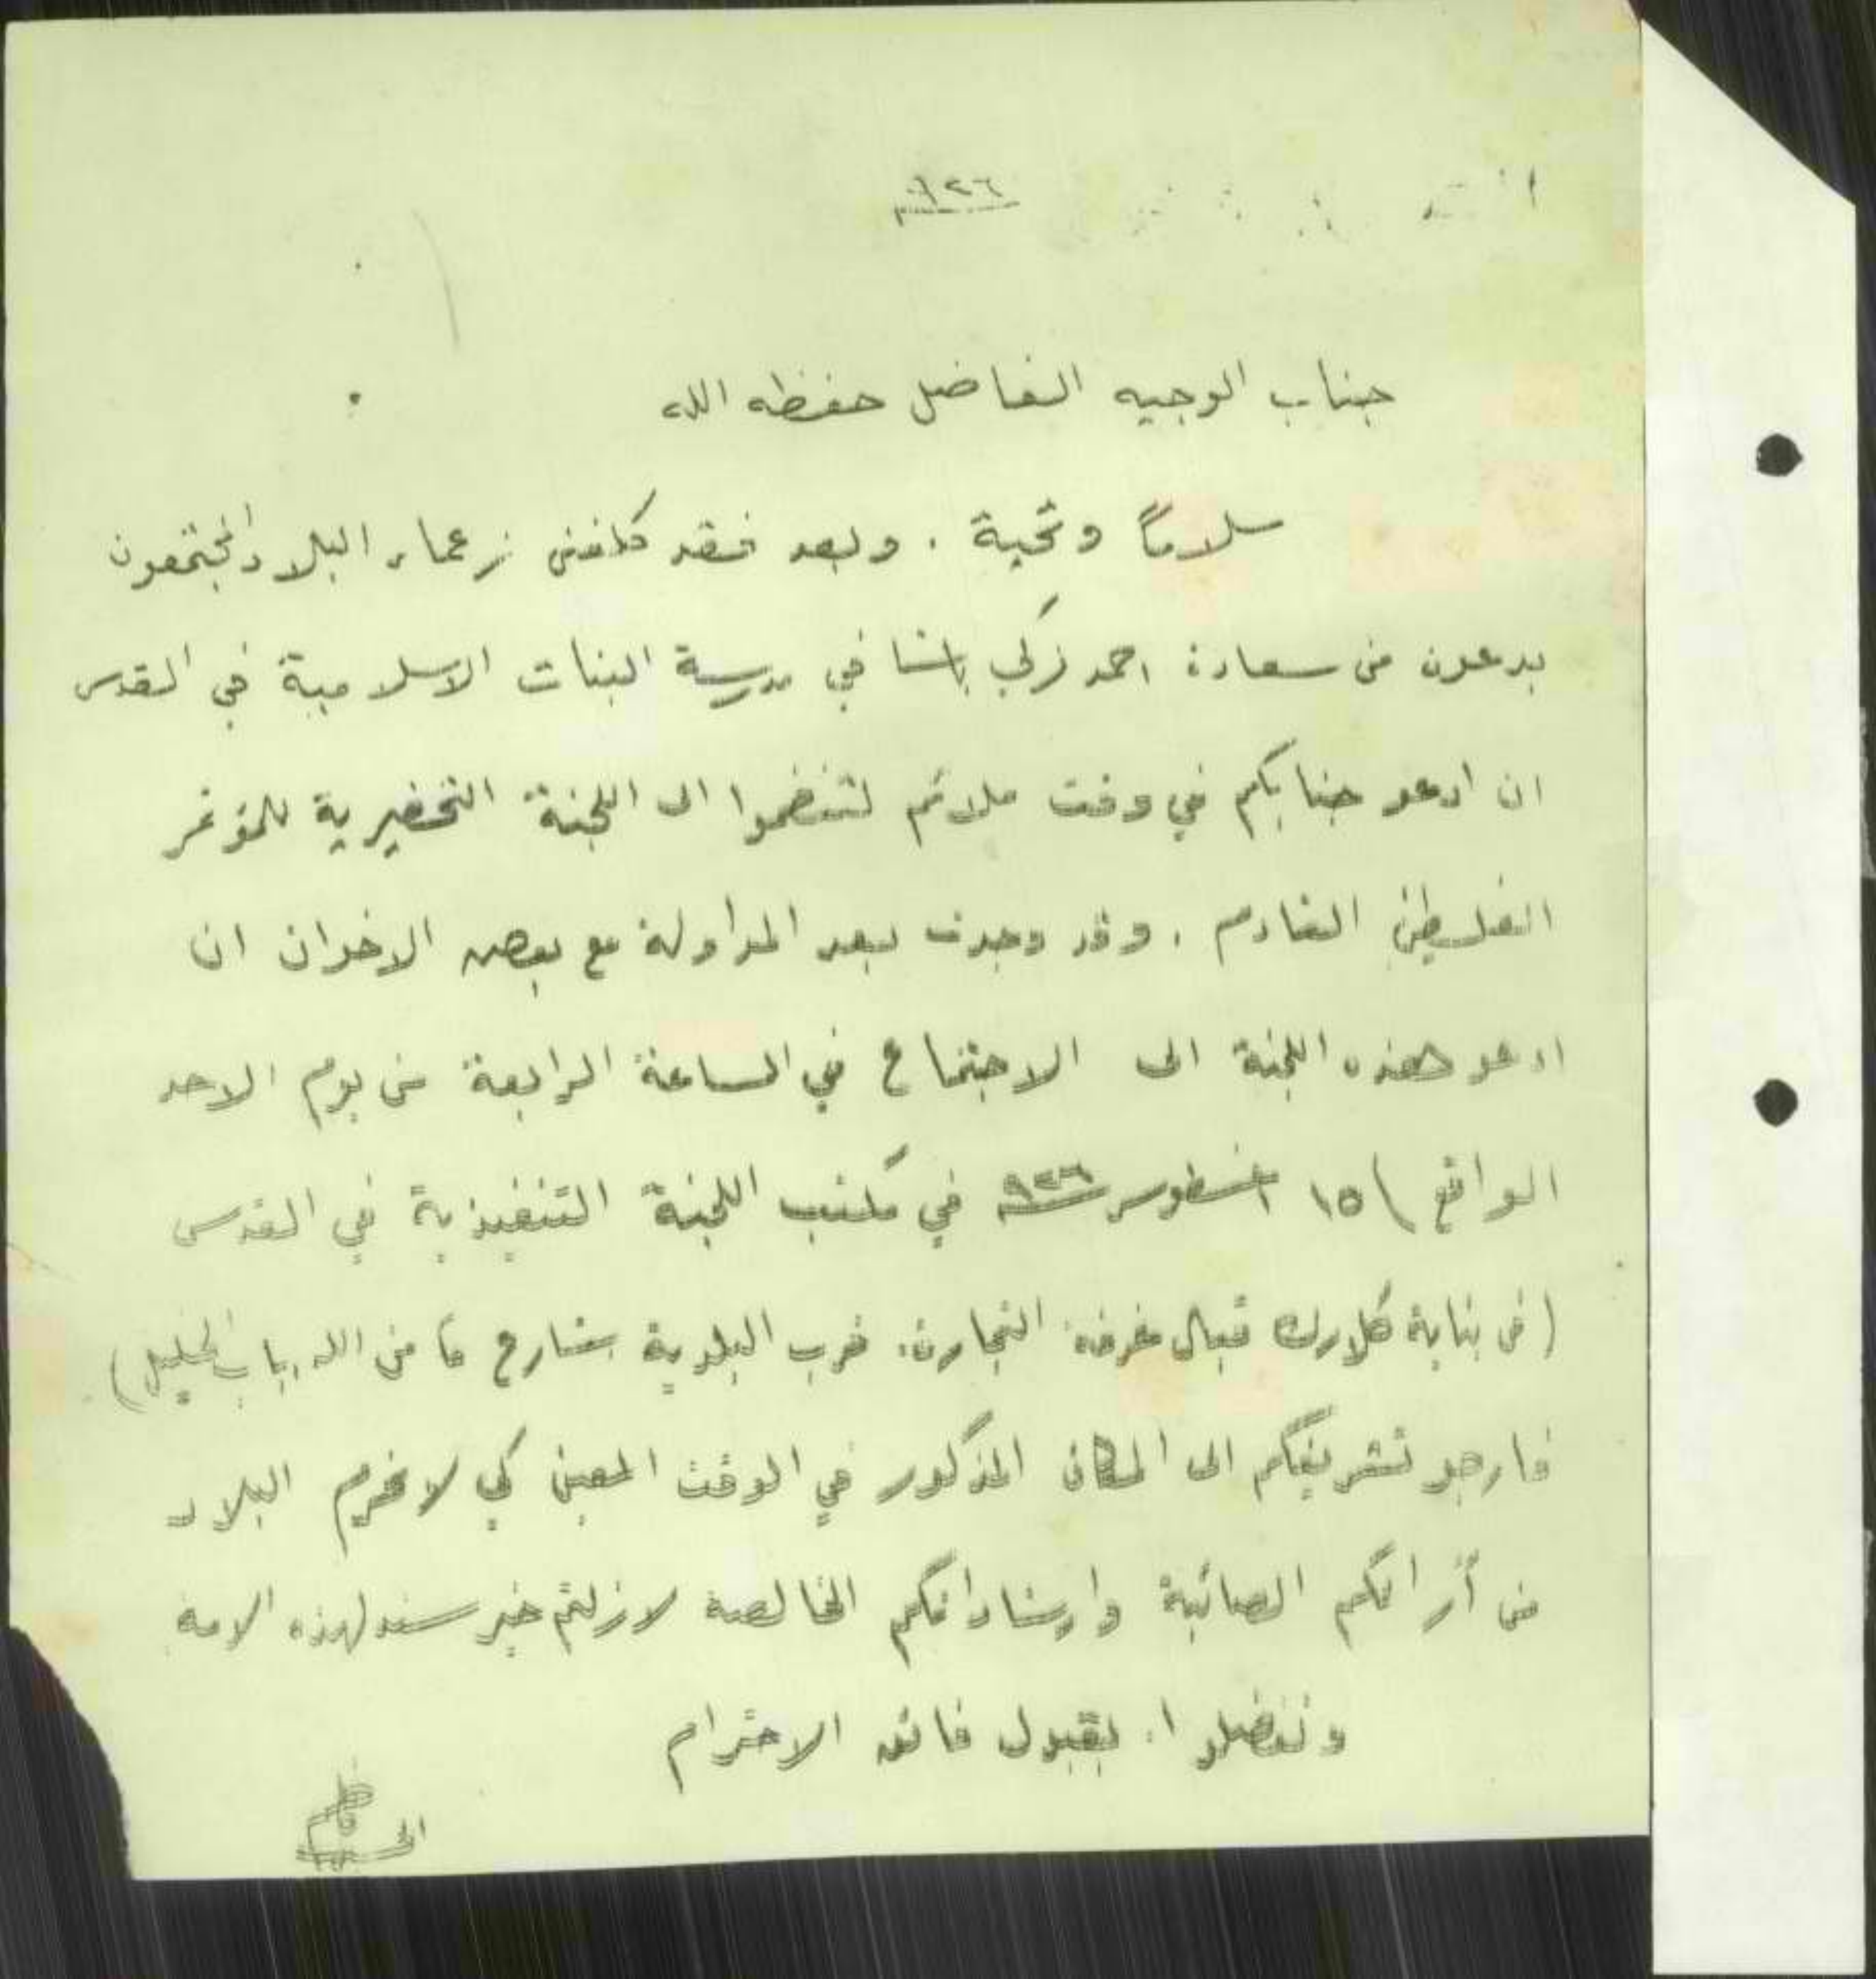 ٩٢٦
جناب الوجيه الفاضل حفظه الله
سلاماً وتحية . وبعد فقد كلفني زعماء البلاد المجتمعون
بدعوة من سعادة احمد زكي باشا في مدرسة البنات الاسلامية في القدس
ان ادعو جنابكم في وقت ملائم لتنضموا الى اللجنة التحضيرية للمؤتمر
الفلسطيني القادم . وقد وجدت بعد المداولة مع بعض الاخوان ان
ادعو هذه اللجنة الى الاجتماع في الساعة الرابعة من يوم الاحد
الواقع ١٥ اغسطوس ٩٢٦ في مكتب اللجنة التنفيذية في القدس
(في بناية كلارك قبال غرفة التجارة، قرب البلدية بشارع مأمن الله، باب الخليل)
فارجو تشريفكم الى المكان المذكور في الوقت المعين كي لا نحرم البلاد
من أرائكم الصائبة وارشاداتكم الخالصة لازلتم خير سند لهذه الامة
وتفضلوا بقبول فائق الاحترام